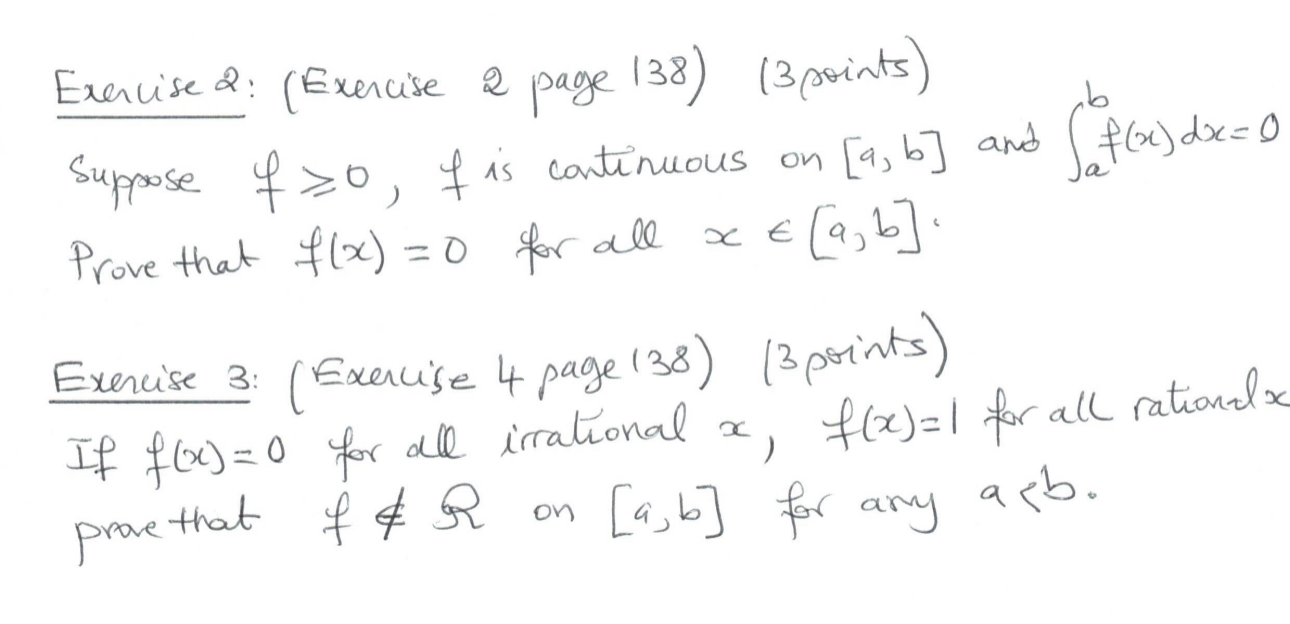 Exercise 2: (Exercise 2 page 138) (3 points)
Suppose f ⩾ 0, f is continuous on [a, b] and ∫_a^b f(x) dx = 0
Prove that f(x) = 0 for all x ∈ [a, b].
Exercise 3: (Exercise 4 page 138) (3 points)
If f(x) = 0 for all irrational x, f(x) = 1 for all rational x
prove that f ∉ ℛ on [a, b] for any a < b.